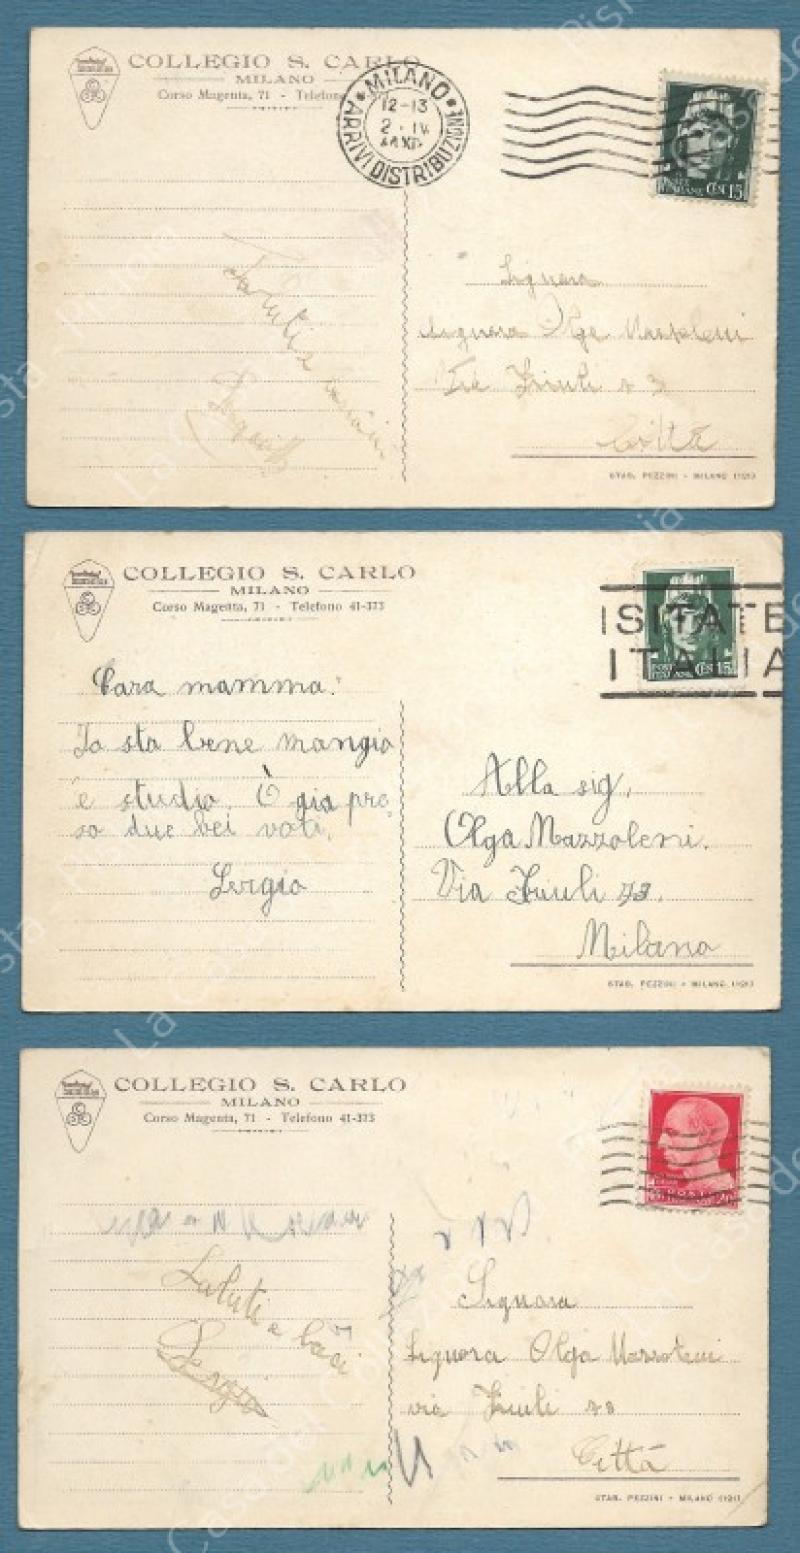 COLLEGIO S. CARLO
MILANO
Corso Magenta, 71 - Telefono
MILANO
12-13
2. IV
ARRIVI DISTRIBUZIONE
POSTE ITALIANE CEN. 15
Signora
Signora Olga Mazzoleni
Via Friuli
Città
Saluti e bacioni
STAB. PEZZINI - MILANO (121)
COLLEGIO S. CARLO
MILANO
Corso Magenta, 71 - Telefono 41-373
ISITATE
ITALIA
POSTE ITALIANE CEN. 15
Cara mamma:
Io sto bene mangio
e studio. Ò gia pre
so due bei voti.
Sergio
Alla sig.
Olga Mazzoleni.
Via Friuli 73.
Milano
STAB. PEZZINI - MILANO (121)
COLLEGIO S. CARLO
MILANO
Corso Magenta, 71 - Telefono 41-373
Saluti e baci
Sergio
Signora
Signora Olga Mazzoleni
via Friuli
Città
STAB. PEZZINI - MILANO (121)